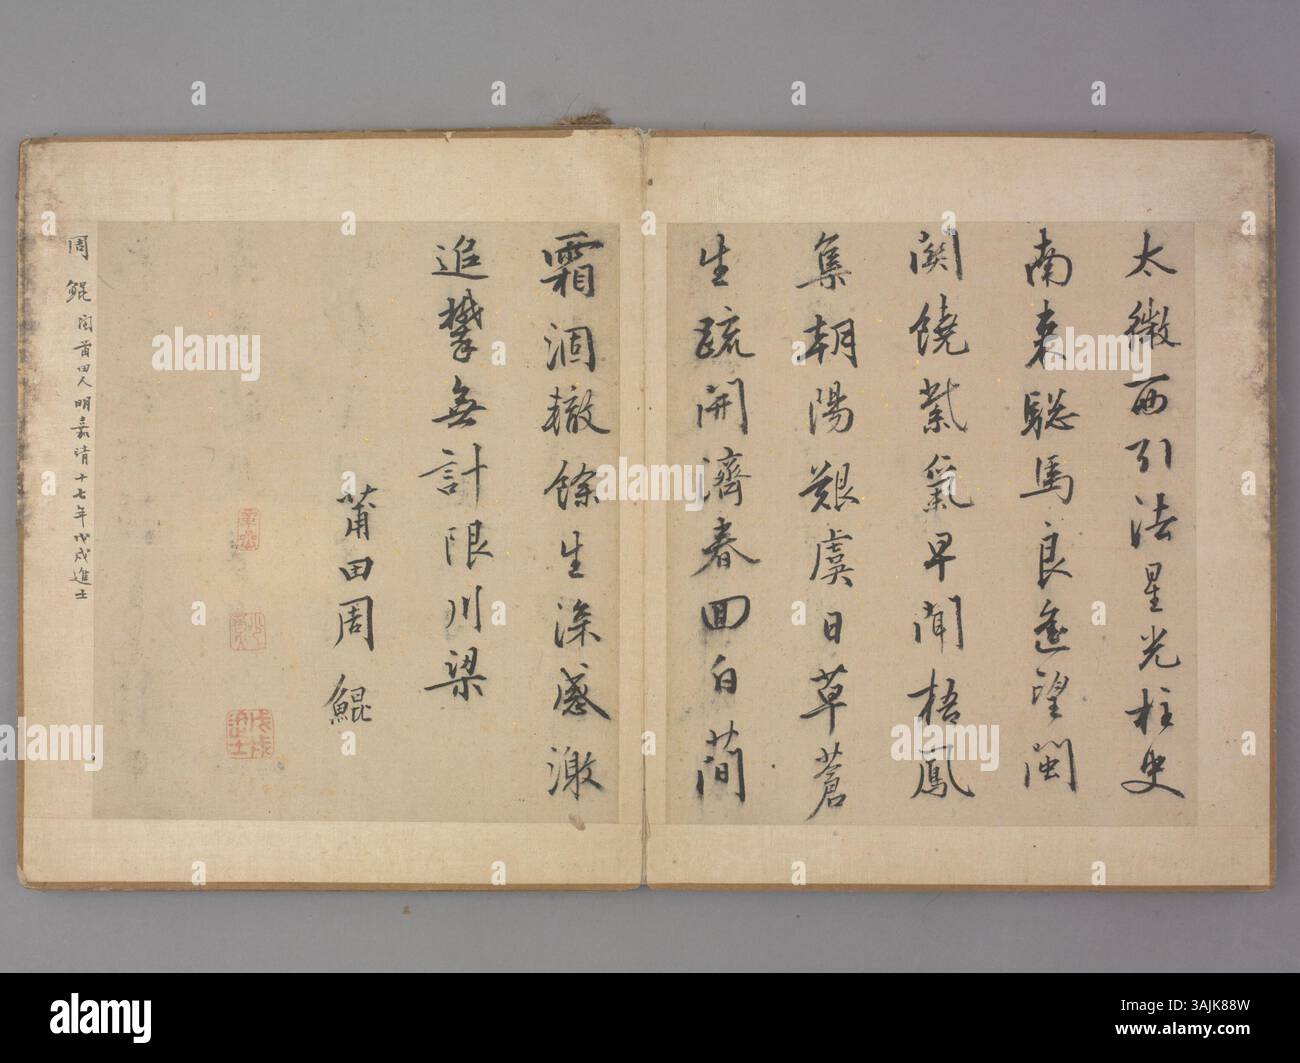 太微西引法星光柱史
南来驄馬良遙望閩
関饒紫氣早聞梧鳳
集朝陽艱虞日草蒼
生疏開濟春回白簡
霜涸轍餘生深感激
追攀無計限川梁
莆田周鯤
周鯤 莆田人明嘉靖十七年戊戌進士
戊戌進士
a alamy
Image ID: 3AJK88W
www.alamy.com